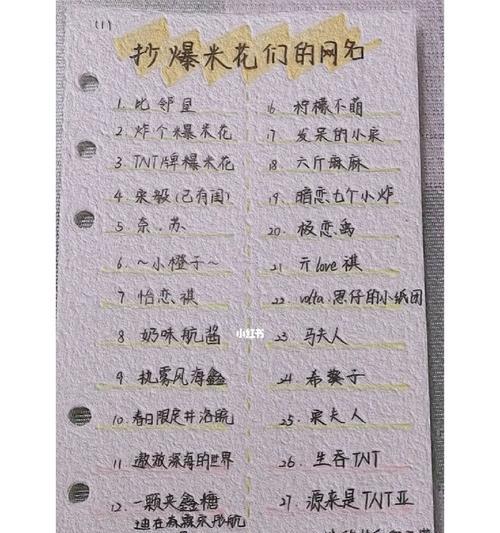 (1)
抄爆米花们的网名
1. 比邻星
2. 炸个爆米花
3. TNT牌爆米花
4. 亲敏(已有闺)
5. 奈.苏
6. ～小橙子～
7 怡恋祺
8 奶味航酱
9. 执雾风海鑫
10. 春日限定井洛晓
11. 遨放深海的世界
12. 一颗夹鑫糖
16 柠檬不萌
17. 发呆的小菜
18 六斤麻麻
19. 暗恋九个小炸
20. 极恋禹
21. 亓love祺
22. volta.思仔的小纸团
23. 马夫人
24 希龚子
25. 栗夫人
26. 生吞TNT
27. 源来是TNT亚
小红书